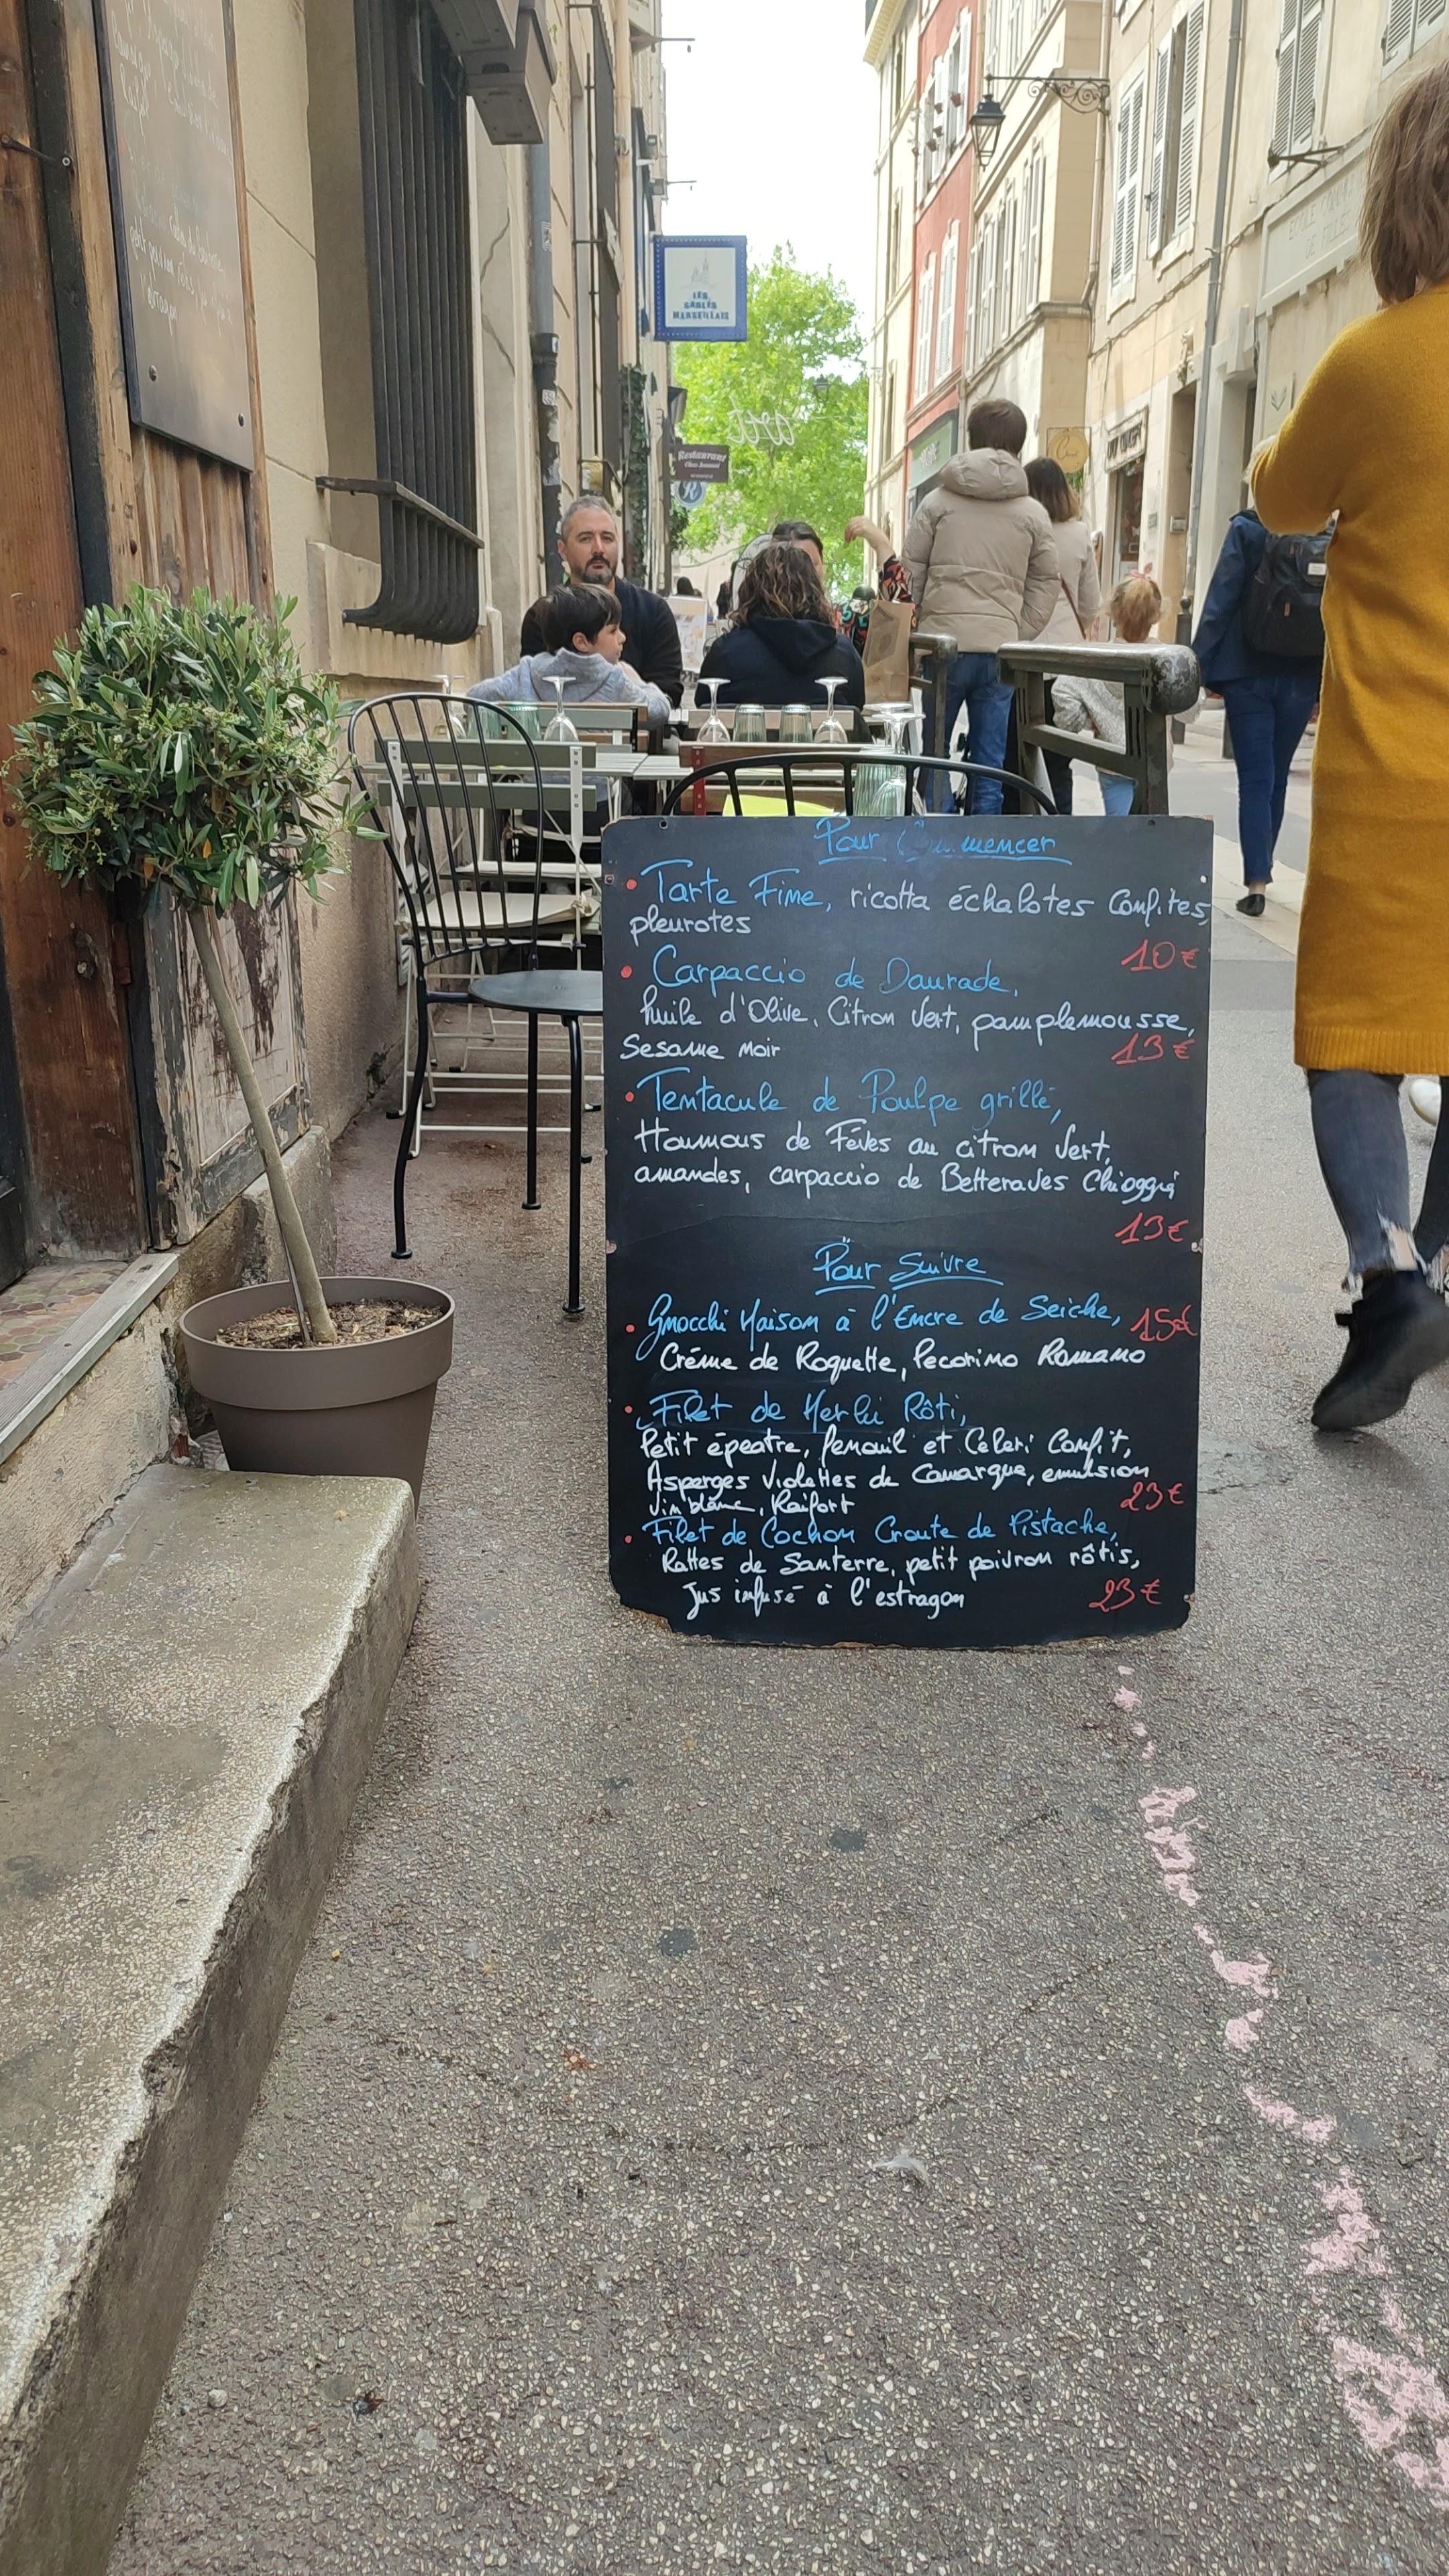 LES
SABLÉS
MARSEILLAIS
Restaurant
Pour Commencer
• Tarte Fine, ricotta échalotes Confites,
pleurotes
10€
• Carpaccio de Daurade,
huile d'Olive, Citron Vert, pamplemousse,
Sesame Noir 13€
• Tentacule de Poulpe grillé,
Houmous de Fèves au citron Vert,
amandes, carpaccio de Betteraves Chioggia
13€
Pour Suivre
• Gnocchi Maison à l'Encre de Seiche, 15€
Crème de Roquette, Pecorino Romano
• Filet de Merlu Rôti,
Petit épeatre, fenouil et Celeri Confit,
Asperges Violettes de Camargue, emulsion
Vin blanc, Raifort 23€
• Filet de Cochon Croute de Pistache,
Rattes de Santerre, petit poivron rôtis,
Jus infusé à l'estragon 23€